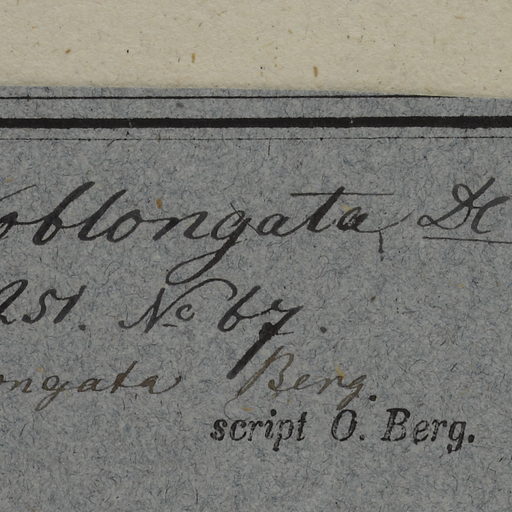 oblongata, DC
251. No 67.
ongata Berg.
script O. Berg.